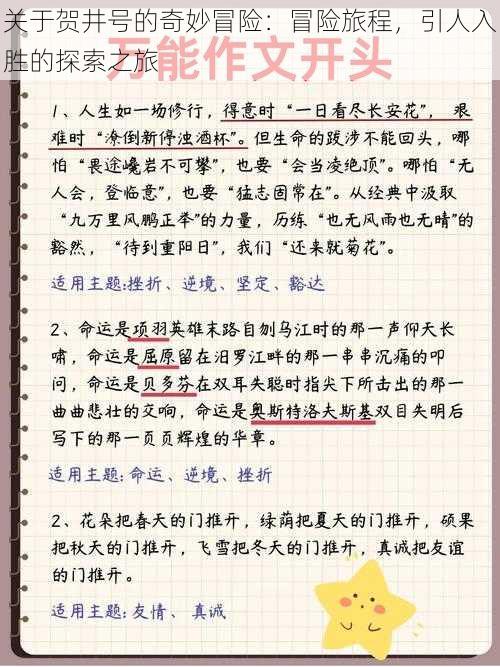 关于贺井号的奇妙冒险：冒险旅程，引人入
胜的探索之旅
万能作文开头
1、人生如一场修行，得意时“一日看尽长安花”，艰
难时“潦倒新停浊酒杯”。但生命的跋涉不能回头，哪
怕“畏途巉岩不可攀”，也要“会当凌绝顶”。哪怕“无
人会，登临意”，也要“猛志固常在”。从经典中汲取
“九万里风鹏正举”的力量，历练“也无风雨也无晴”的
豁然，“待到重阳日”，我们“还来就菊花”。
适用主题:挫折、逆境、坚定、豁达
2、命运是项羽英雄末路自刎乌江时的那一声仰天长
啸，命运是屈原留在汨罗江畔的那一串串沉痛的叩
问，命运是贝多芬在双耳失聪时指尖下所击出的那一
曲曲悲壮的交响，命运是奥斯特洛夫斯基双目失明后
写下的那一页页辉煌的华章。
适用主题:命运、逆境、挫折
2、花朵把春天的门推开，绿荫把夏天的门推开，硕果
把秋天的门推开，飞雪把冬天的门推开，真诚把友谊
的门推开。
适用主题:友情、真诚